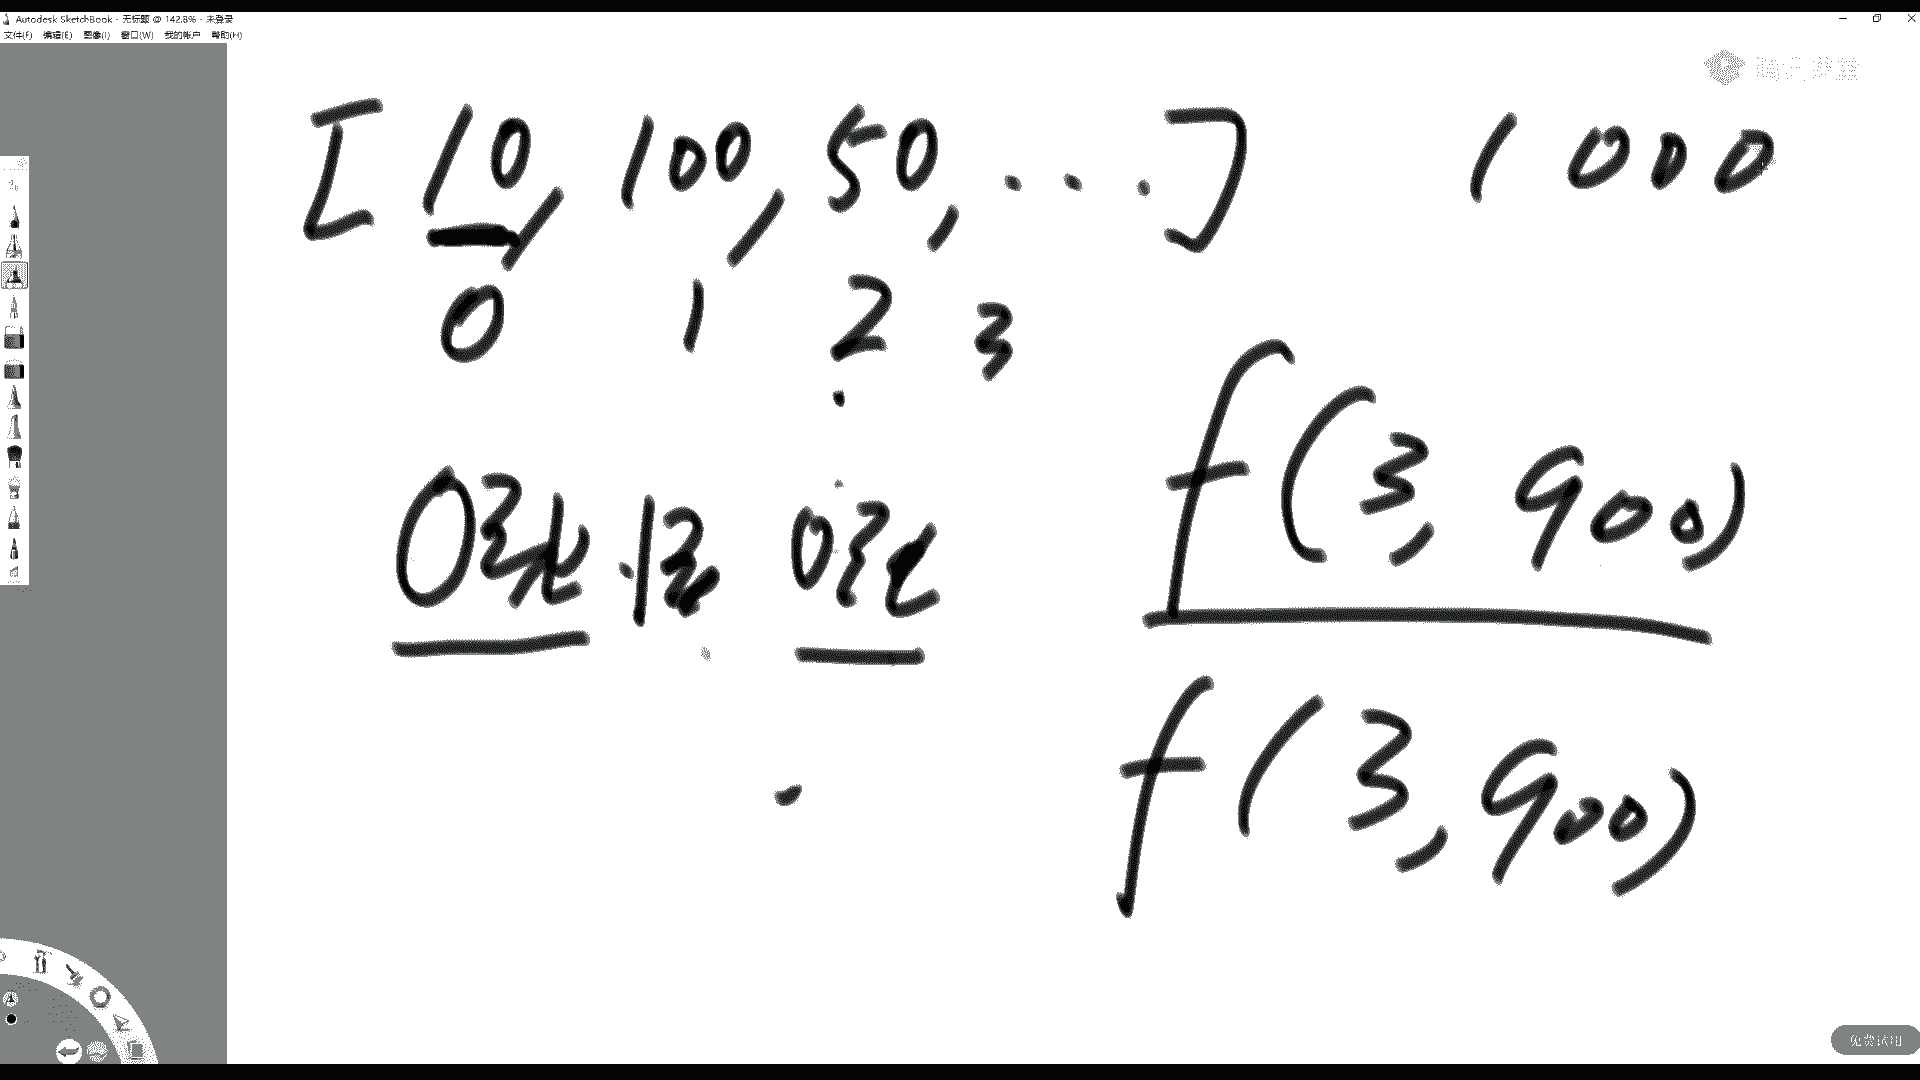 Autodesk SketchBook - 无标题 @ 142.8% - 未登录
文件(F) 编辑(E) 图像(I) 窗口(W) 我的帐户 帮助(H)
[10, 100, 50, ...] 1000
0 1 2 3
0张 1张 0张
f(3, 900)
f(3, 900)
免费试用